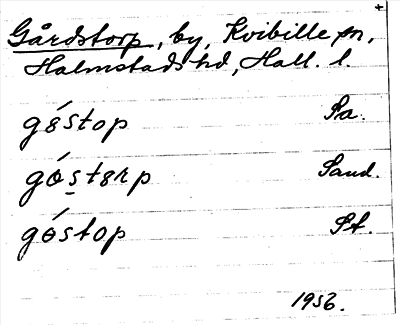 Gårdstorp, by, Kvibille sn,
Halmstads hd, Hall. l.
gó̱stop Pa.
góstərp Sand.
góstop St.
1956.